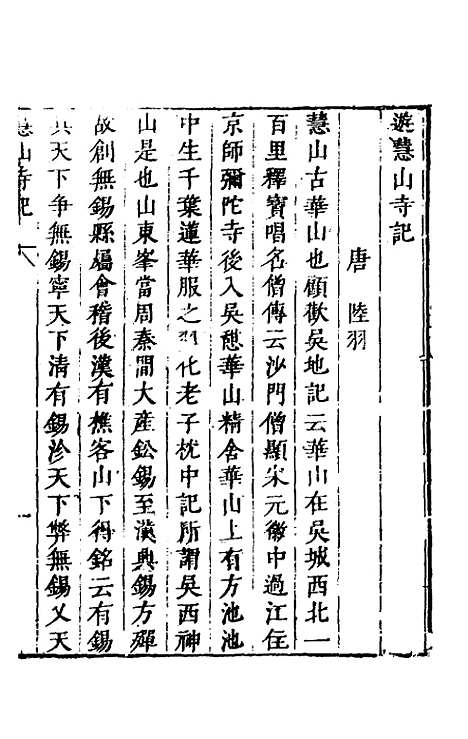 遊慧山寺記
唐　陸羽
慧山古華山也顧歡吳地記云華山在吳城西北一
百里釋寶唱名僧傳云沙門僧顯宋元徽中過江住
京師彌陀寺後入吳憩華山精舍華山上有方池池
中生千葉蓮華服之羽化老子枕中記所謂吳西神
山是也山東峯當周秦間大產鈆錫至漢興錫方殫
故創無錫縣屬會稽後漢有樵客山下得銘云有錫
兵天下爭無錫寧天下清有錫沴天下弊無錫乂天
慧山寺記　一